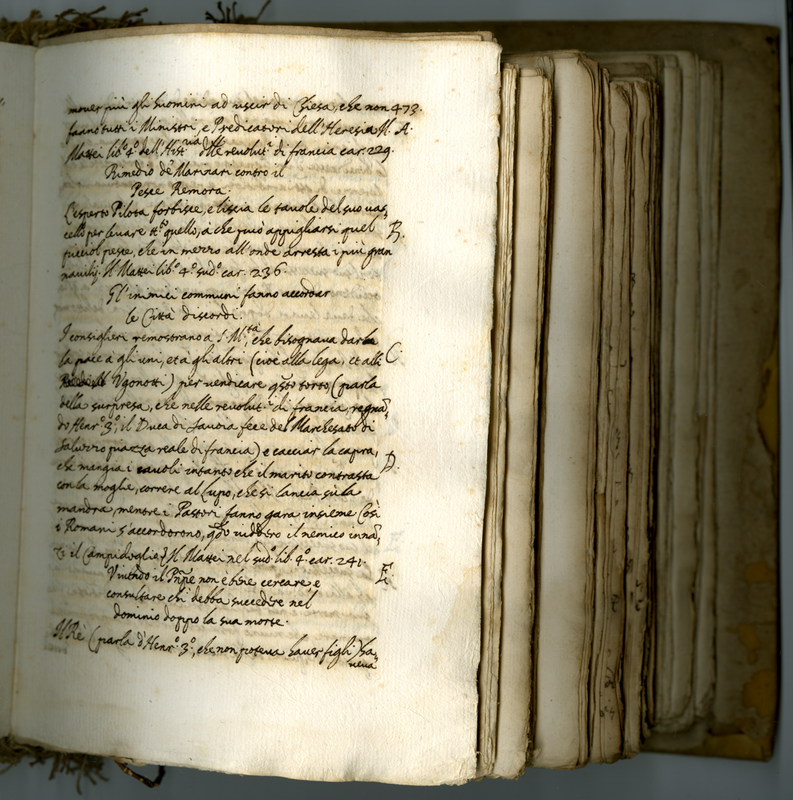 mover più gli huomini ad uscir di Chiesa, che non 473.
fanno tutti i Ministri, e Predicatori dell'Heresia. Il A.
Mattei lib.º 4.º dell'Hist.ria delle revolut.i di francia car. 229.
Rimedio de Marinari contro il
Pesce Remora.
L'esperto Pilota forbisce, e liscia le tavole del suo vas-
cello per levare tt.º quello, à che può appigliarsi quel B.
picciol pesce, che in mezzo all'onde arresta i più gran
navilij. Il Mattei lib.º 4.º sud.º car. 236.
Gl'inimici communi fanno accordar
le Città discordi.
I consiglieri remostrano à S. M.tà che bisognava dar la
la pace à gli uni, et à gli altri (cioè alla lega, et alli C.
Ugonotti) per vendicare q̃sto torto (parla
della surpresa, che nelle revolut.i di francia, regnã-
do Henr.º 3.º, il Duca di Savoia fece del Marchesato di
Saluzzo piazza reale di francia) e cacciar la capra,
che mangia i cavoli intanto che il marito contrasta D.
con la moglie, correre al Lupo, che si lancia sù la
mandra, mentre i Pastori fanno gara insieme. Così
i Romani s'accordorono, qdo viddero il nemico innã-
zi il Campidoglio. Il Mattei nel sud.º lib. 4.º car. 241.
Vivendo il Pñpe non è bene cercare, e E.
consultare chi debba succedere nel
dominio doppo la sua morte.
Il Rè (parla d'Henr.º 3.º, che non poteva haver figli) ha-
veva